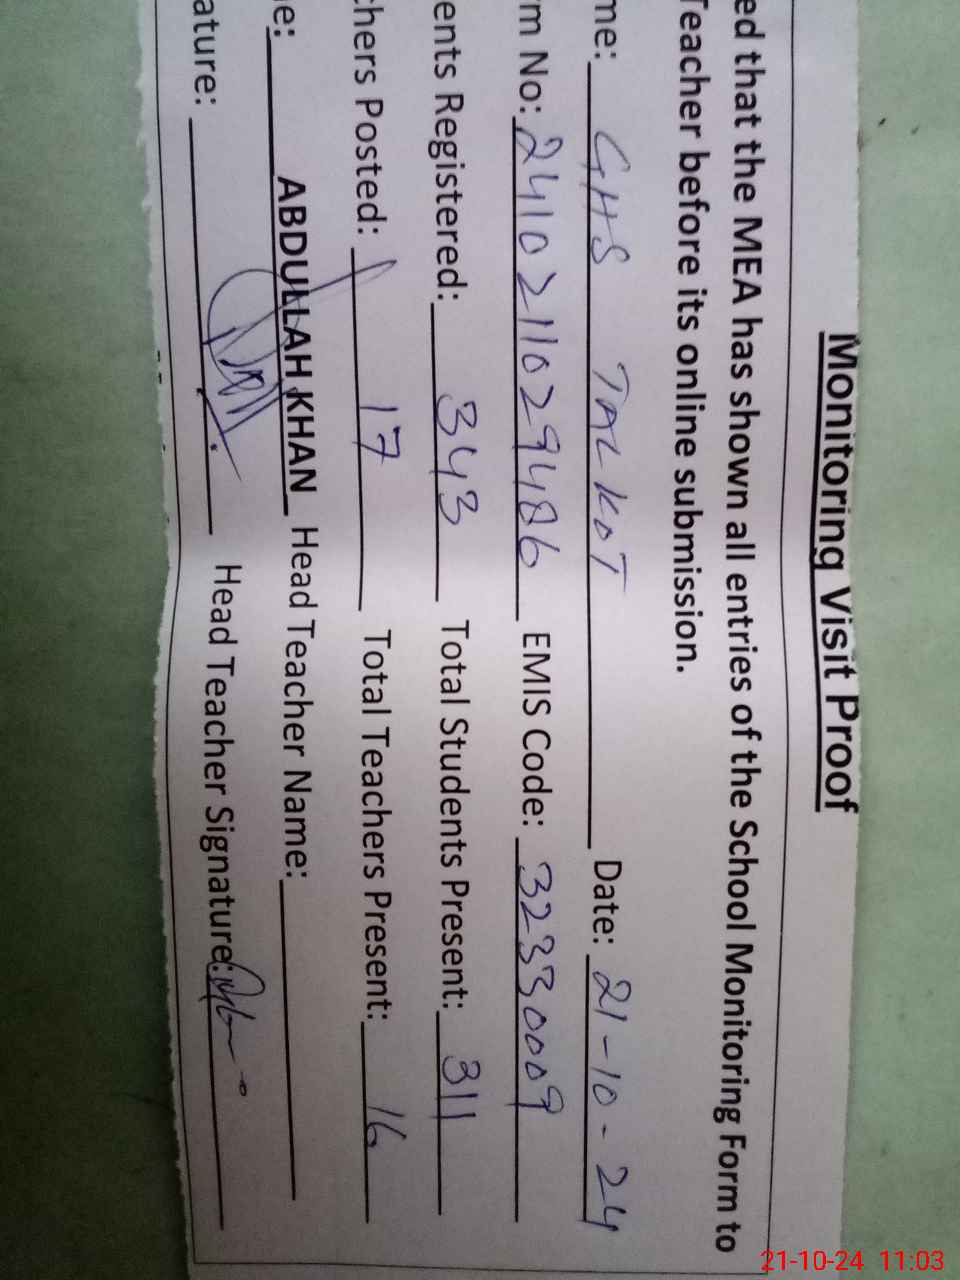 Monitoring Visit Proof
ed that the MEA has shown all entries of the School Monitoring Form to
Teacher before its online submission.
me: GHS TALKOT Date: 21-10-24
rm No: 2410211029486 EMIS Code: 32330009
ents Registered: 343 Total Students Present: 311
chers Posted: 17 Total Teachers Present: 16
e: ABDULLAH KHAN Head Teacher Name:
ature: Head Teacher Signature:
21-10-24 11:03